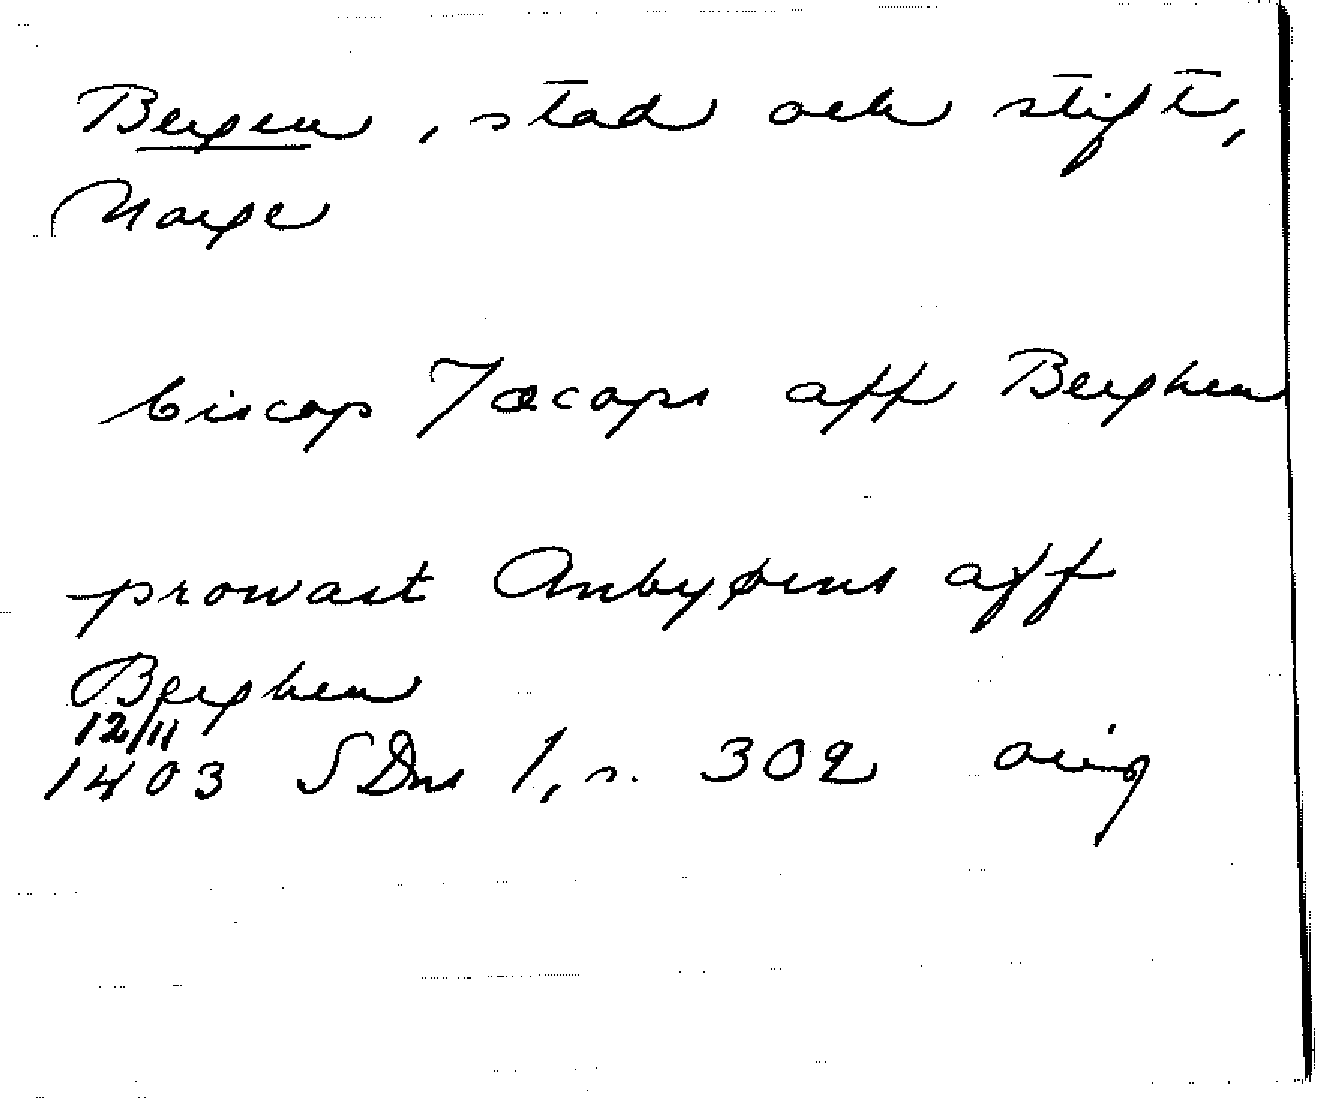 Bergen, stad och stift,
Norge
biscop Jacops aff Berghen
prowast Anbyørns aff
Berghen
12/11
1403 SDns 1, s. 302 orig